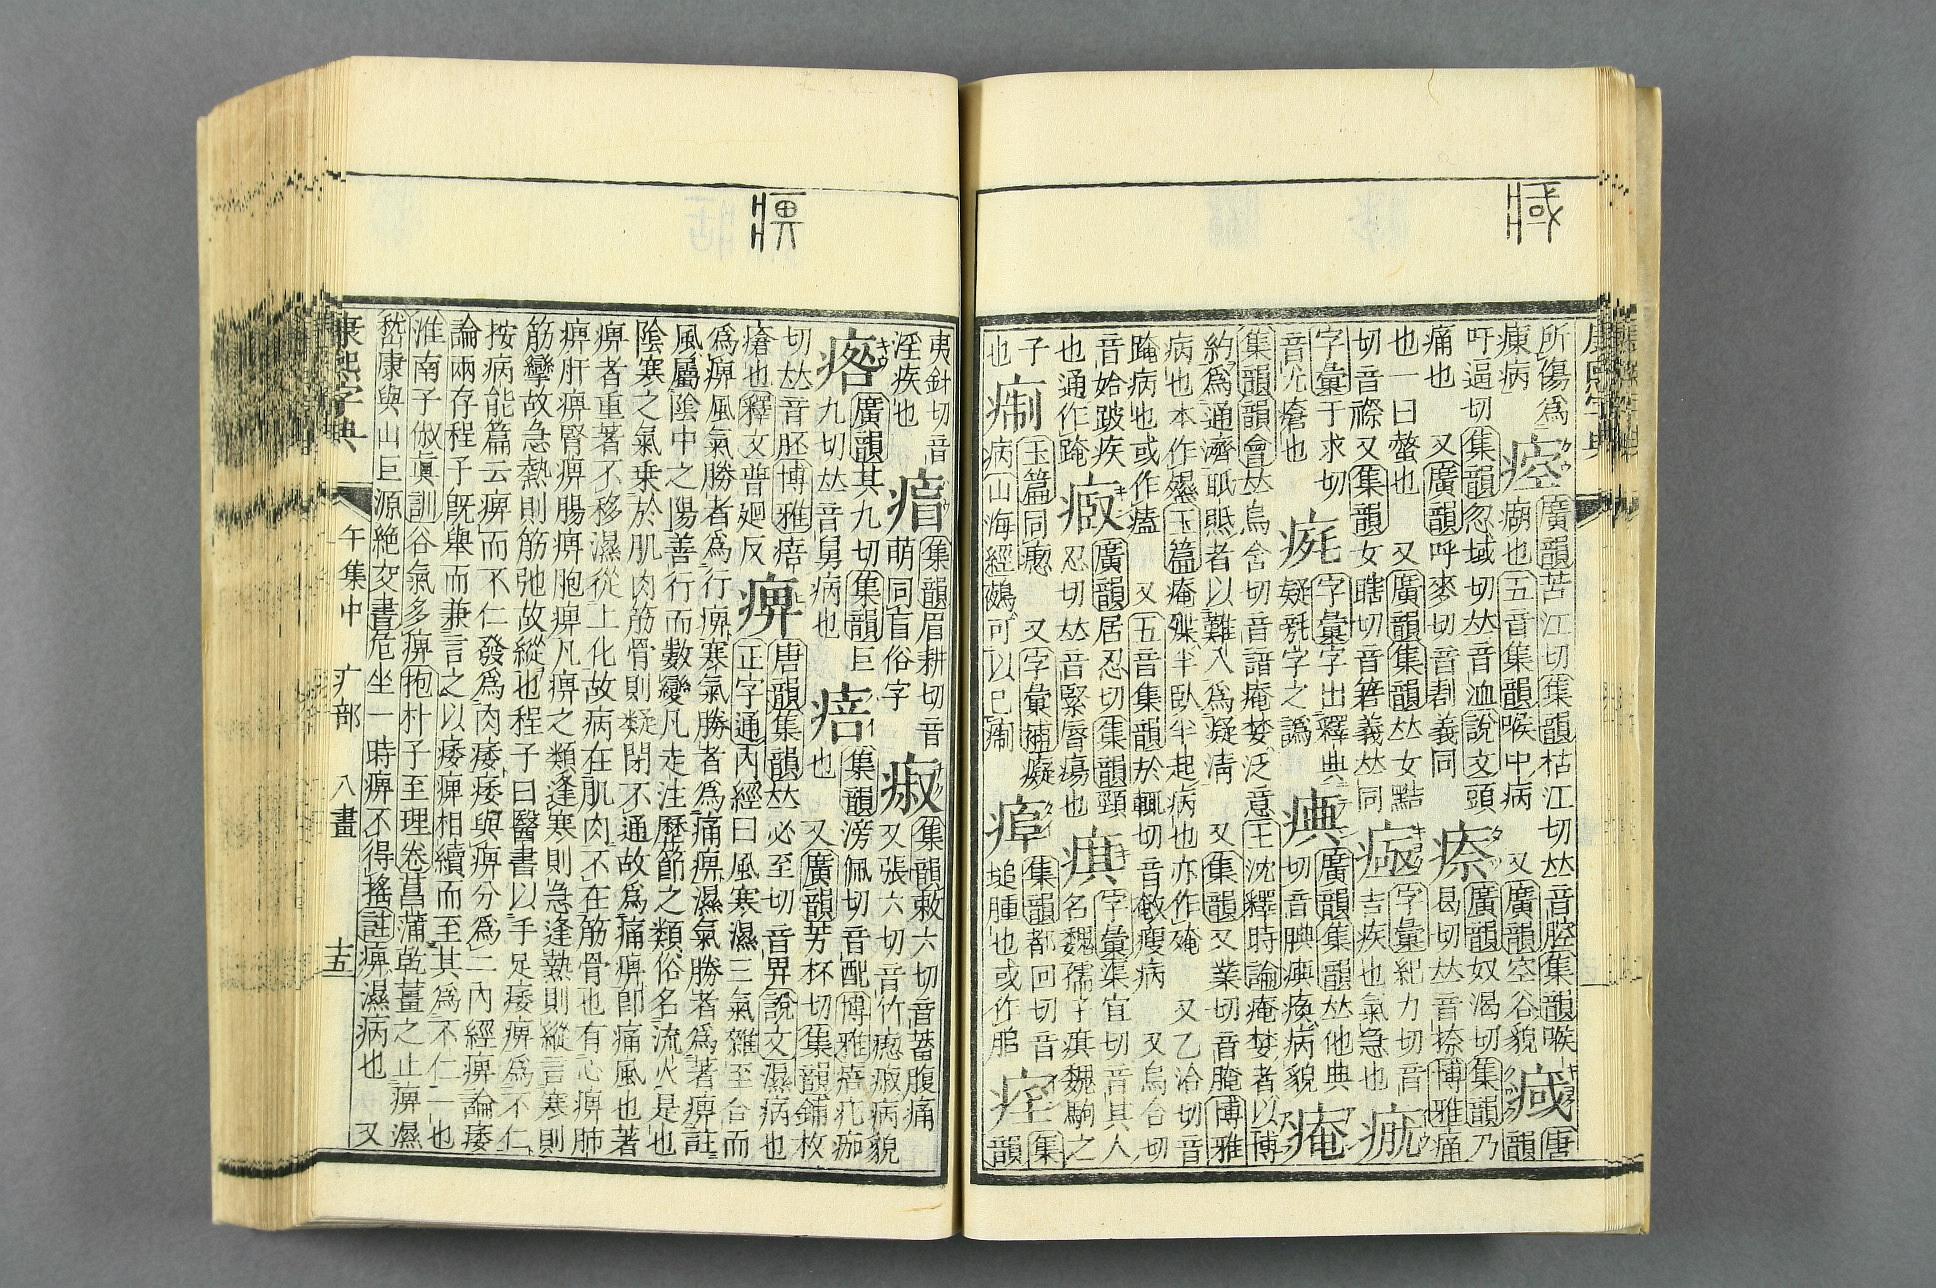 所傷爲 㾤 廣韻苦江切集韻枯江切𠀤音腔集韻喉 唐
病 也五音集韻喉中病 又廣韻空谷貌 韻
吁逼切集韻忽域切𠀤音洫說文頭 廣韻奴渴切集韻乃
痛也 又廣韻呼麥切音義同 曷切𠀤音捺博雅痛
也一曰螫也 又廣韻集韻𠀤女黠 字彙紀力切音
切音 又集韻女瞎切音 義𠀤同 吉疾也氣急也
字彙于求切 字彙字出釋典 廣韻集韻𠀤他典
音尤瘡也 疑 字之譌 痶 切音腆痶瘓病貌 痷
集韻韻會𠀤烏含切音諳痷婪泛意王沈釋時論痷婪者以博
約爲通濟 者以難入爲凝清 又集韻又業切音腌博雅
病也本作 玉篇痷殜半臥半起病也亦作殗 又乙洽切音
病也或作 又五音集韻於輒切音 瘦病 又烏合切
音姶跛疾 廣韻居忍切集韻頸 字彙渠宜切音其人
也通作 忍切𠀤音緊脣瘍也 名魏孺子 魏駒之
子 玉篇同瘛 又字彙補癡 集韻都回切音 集
也 痸 病山海經 可以已痸 腫也或作 痓 韻
夷針切音 集韻眉耕切音 集韻敕六切音蓄腹痛
淫疾也 萌同盲俗字 又張六切音竹瘛 病貌
廣韻其九切集韻巨 集韻滂佩切音配博雅 疕痂
九切𠀤音舅病也 也 又廣韻芳杯切集韻鋪枚
切𠀤音胚博雅 唐韻集韻𠀤必至切音畀說文濕病也
瘡也釋文普廻反 痹 正字通內經曰風寒濕三氣雜至合而
爲痹風氣勝者爲行痹寒氣勝者爲痛痹濕氣勝者爲著痹註
風屬陰中之陽善行而數變凡走注歷節之類俗名流火是也
陰寒之氣乘於肌肉筋骨則凝閉不通故爲痛痹卽痛風也著
痹者重著不移濕從土化故病在肌肉不在筋骨也有心痹肺
痹肝痹腎痹腸痹胞痹凡痹之類逢寒則急逢熱則縱言寒則
筋攣故急熱則筋弛故縱也程子曰醫書以手足痿痹爲不仁
按病能篇云痹而不仁發爲肉痿痿與痹分爲二內經痹論痿
論兩存程子旣舉而兼言之以痿痹相續而至其爲不仁一也
淮南子俶眞訓谷氣多痹抱朴子至理卷菖蒲乾薑之止痹濕
嵆康與山巨源絶交書危坐一時痹不得搖註痹濕病也 又
康熙字典 午集中 疒部 八畫 十五
康熙字典